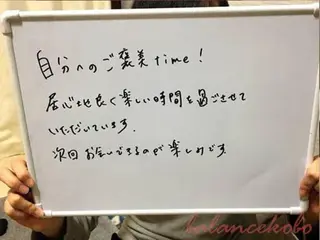 自分へのご褒美time!
居心地良く楽しい時間を過ごさせて
いただいています.
次回お会いできるので楽しみです.
balancekobo